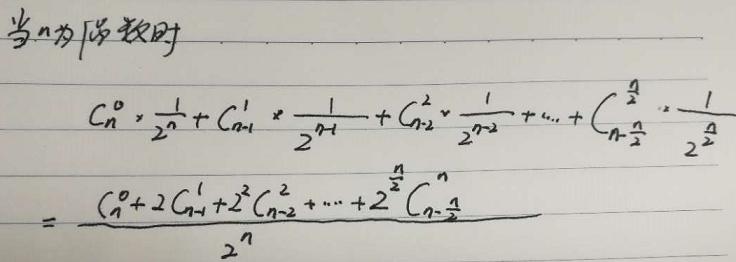 当n为偶数时
C_n^0 · 1/2^n + C_{n-1}^1 × 1/2^{n-1} + C_{n-2}^2 × 1/2^{n-2} + ... + C_{n-n/2}^{n/2} · 1/2^{n/2}
= (C_n^0 + 2C_{n-1}^1 + 2^2 C_{n-2}^2 + ... + 2^{n/2} C_{n-n/2}^n) / 2^n